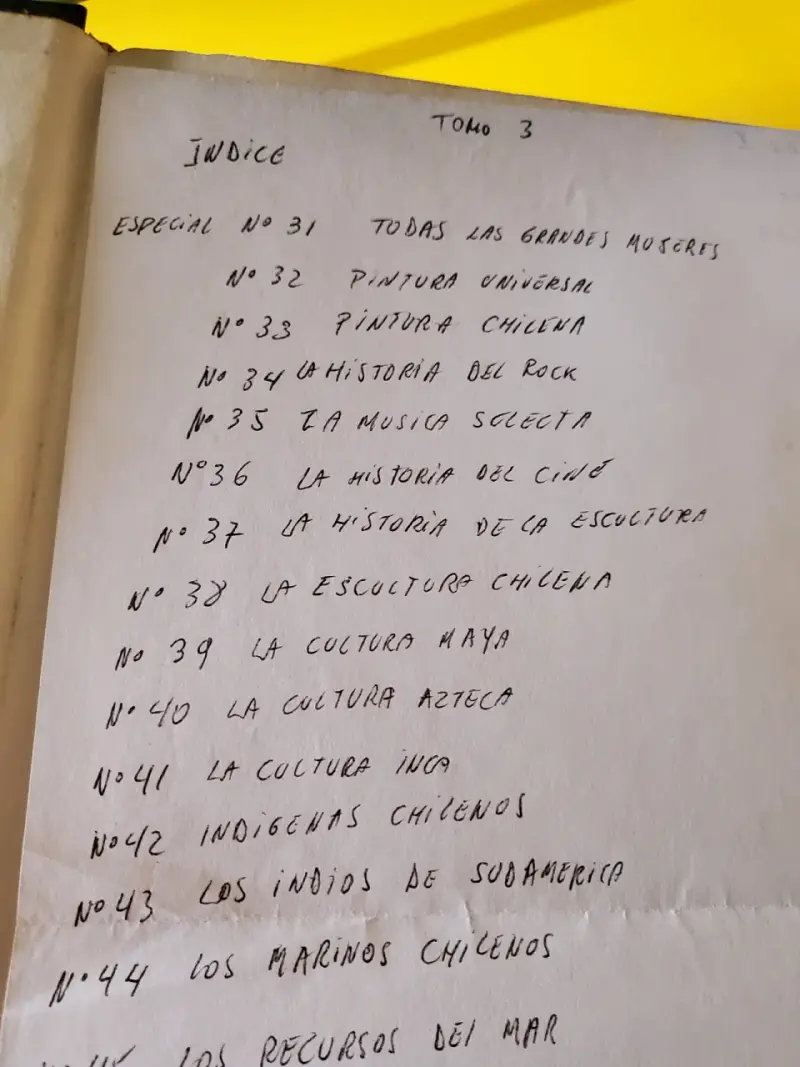 TOMO 3
ÍNDICE
ESPECIAL Nº 31 TODAS LAS GRANDES MUJERES
Nº 32 PINTURA UNIVERSAL
Nº 33 PINTURA CHILENA
Nº 34 LA HISTORIA DEL ROCK
Nº 35 LA MUSICA SELECTA
Nº 36 LA HISTORIA DEL CINE
Nº 37 LA HISTORIA DE LA ESCULTURA
Nº 38 LA ESCULTURA CHILENA
Nº 39 LA CULTURA MAYA
Nº 40 LA CULTURA AZTECA
Nº 41 LA CULTURA INCA
Nº 42 INDIGENAS CHILENOS
Nº 43 LOS INDIOS DE SUDAMERICA
Nº 44 LOS MARINOS CHILENOS
Nº 45 LOS RECURSOS DEL MAR